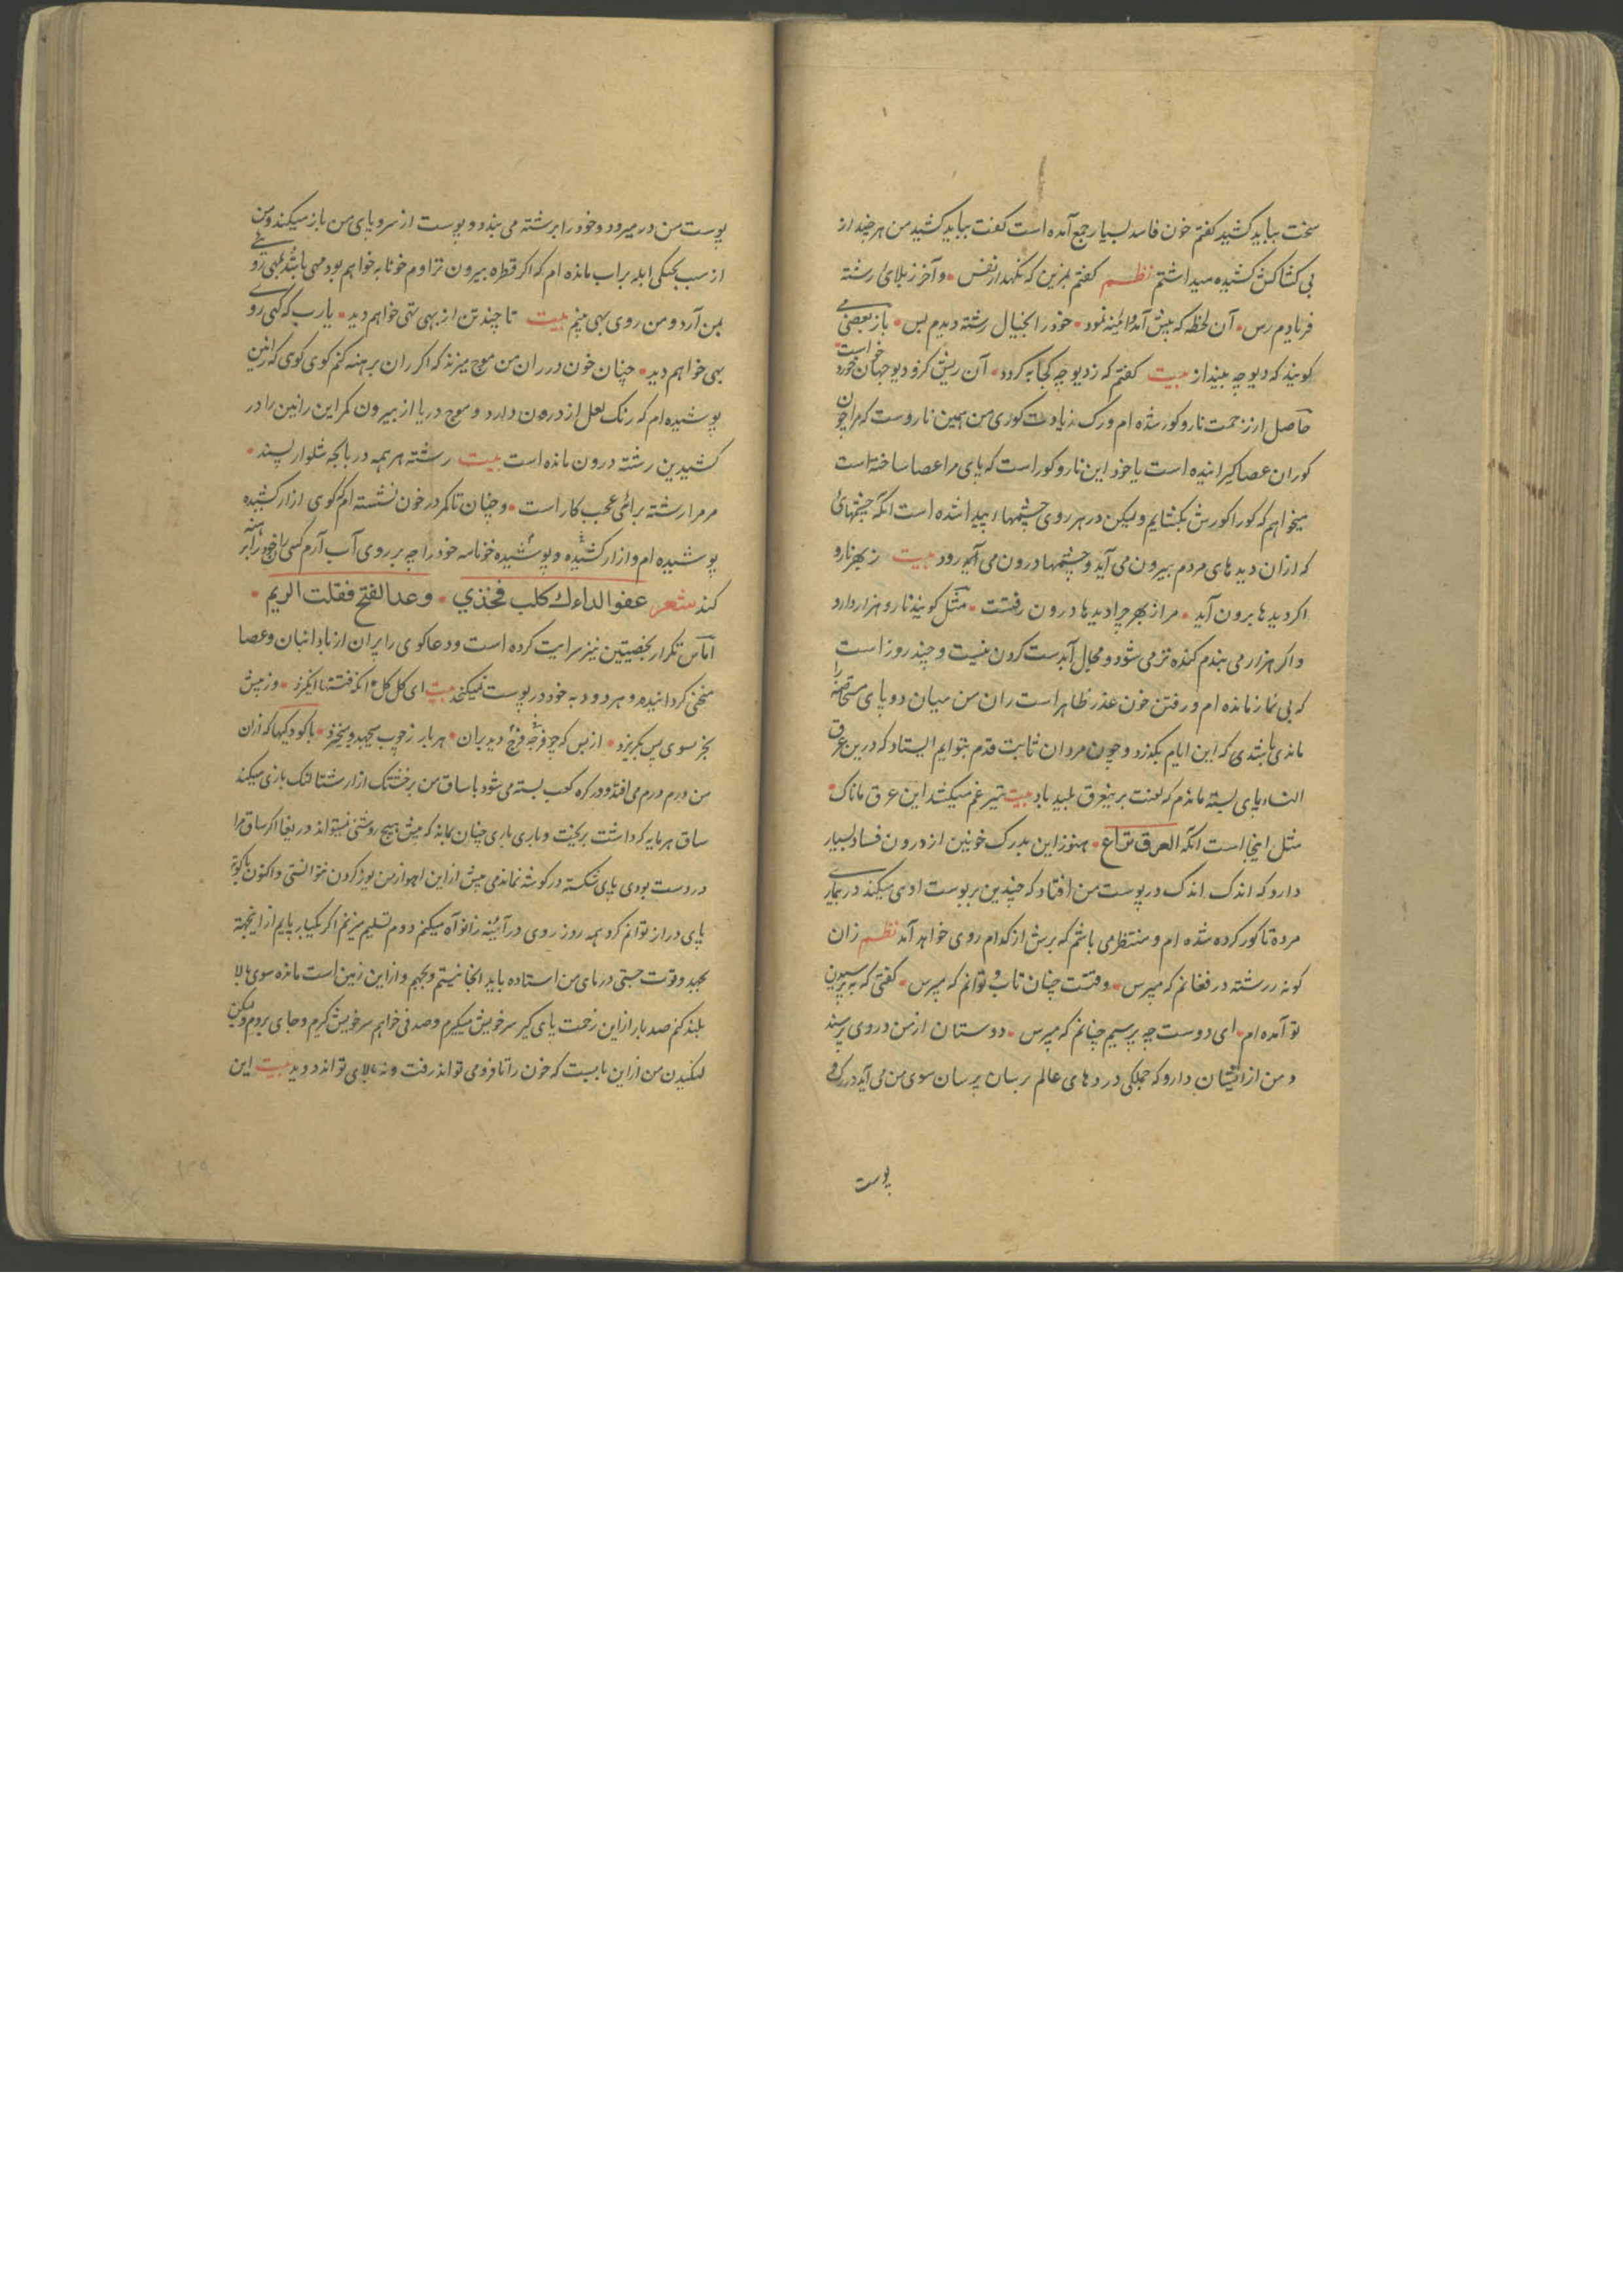 سخت بباید کشید کفتم خون فاسد بسیار جمع آمده است کفت بباید کشید من هر چند از
بی کشاکش کشیده میداشتم نظم کفتم بمزین که نکهدار نفس و آخر ز بلای رشته
فریادم رس آن لحظه که پیش آمد نمود خود را بخیال رشته دیدم بس باز بعضی می
کویند که دیوچه بینداز بیت کفتم که ز دیوچه کجا به کردد آن ریش کزو دیو جهان خورد خواست
حاصل از زحمت نارو کور شده ام و رک زیادت کوری من همین ناروست که مرا چون
کوران عصا کیرانیده است یا خود این نارو کور است که پای مرا عصا ساخته است
میخواهم که کورا کورش بکشایم ولیکن در هر روی چشمها پیدا شده است آنکه چشمهای
که از آن دیدهای مردم بیرون می آید و چشمها درون می رود بیت ز بهر نارو
اکر دیدها برون آید مرا ز بهر چرا دیدها درون رفتست مثل کویند نارو هزار دارو
و اکر هزار می بندم کنده تر می شود و مجال آبدست کردن نیست و چند روز است
که بی نماز مانده ام و رفتن خون عذر ظاهر است ران من میان دو پای مستحاضه را
ماندی باشدی که این ایام بکذرد و چون مردان ثابت قدم بتوایم ایستاد که درین عرق
النسا پای بسته ماندم که لعنت بر عرق پلید باد بیت تیر غم میکشد این عرق ماناک
مثل اینجا است آنکه العرق نزاع هنوز این بدرک خونین از درون فساد بسیار
دارو که اندک اندک در پوست من افتاد که چندین بر پوست ادمی میکند در بیماری
مرده تا کور کرده شده ام و منتظر می باشم که برش از کدام روی خواهد آمد نظم زان
کونه ز رشته در فغانم که مپرس وقتست چنان تاب و توانم که مپرس کفتی که به پرسیدن
تو آمده ام ای دوست چه پرسیم چنانم که مپرس دوستان از من دروی پرسند
و من از ایشان دارو که جملکی دردهای عالم پرسان پرسان سوی من می آید در رک و
پوست
پوست من در میرود و خود را برشته می بندد و پوست از سر و پای من باز میکند و من
از سبب ابله بر اب مانده ام که اکر قطره بیرون تراوم خونابه خواهم بود مهی باشد بهی رو
بمن آرد و من روی بهی بینم بیت تا چند تن از بهی تهی خواهم دید یارب که کهی روی
بهی خواهم دید چنان خون در ران من موج میزند که اکر ران برهنه کنم کوی کوی که رانین
پوشیده ام که رنک لعل از درون دارد و موج دریا از بیرون مکر این رانین را در
کشیدین رشته درون مانده است بیت رشته هر همه در پاچه شلوار پسند
مر مرا رشته برائی عجب کار است و چنان تا کمر در خون نشسته ام که کوی ازار کشیده
پوشیده ام و ازار کشیده و پوشیده خونامه خود را چه بر روی آب آرم کسی ران خود را برهنه
کند شعر عفو الداءك كلب فخذي وعدا لفتح فقلت الريم
آماس تکرار بخصیتین نیز سرایت کرده است و دعاکوی را پیران از بادانبان و عصا
منحنی کردانیده و هر دو د به خود در پوست نمیکنجد بیت ای کل کل آنکه فتنها انکیزد وز پیش
بجز سوی پس بکریزد از بس که چو فرجه فرخ و دیر یان هر بار ز چوب میجهد و میخیزد با کودکیها که از ان
من درم درم می افتد و در کره کعب بسته می شود با ساق من برخشتک ازار شتالنک بازی میکند
ساق هر مایه که داشت بریخت و باری باری چنان بماند که پیش هیچ روشنی نمیتواند دریغا اکر ساق مرا
درد دست بودی پای شکسته در کوشه نماندمی پیش از این آهو از من یوز کردن نتوانستی و اکنون
پای دراز توانم کرد همه روز روی در آیینه زانو آه میکنم و دم تسلیم میزنم اکر یکبار پایم از اینجهة
بجهد و قوت جستی در پای من استاده باید انجا نیستم و بجهم و از این زمین است مانده سوی بالا
بلند کنم صد بار از این زحمت پای کیر سر خویش میکیرم و صد نی خواهم سر خویش کیرم و جای بروم ولیکن
لنکیدن من از این بابست که خون را تا فرو می تواند رفت و نه بالای تواند دوید بیت این